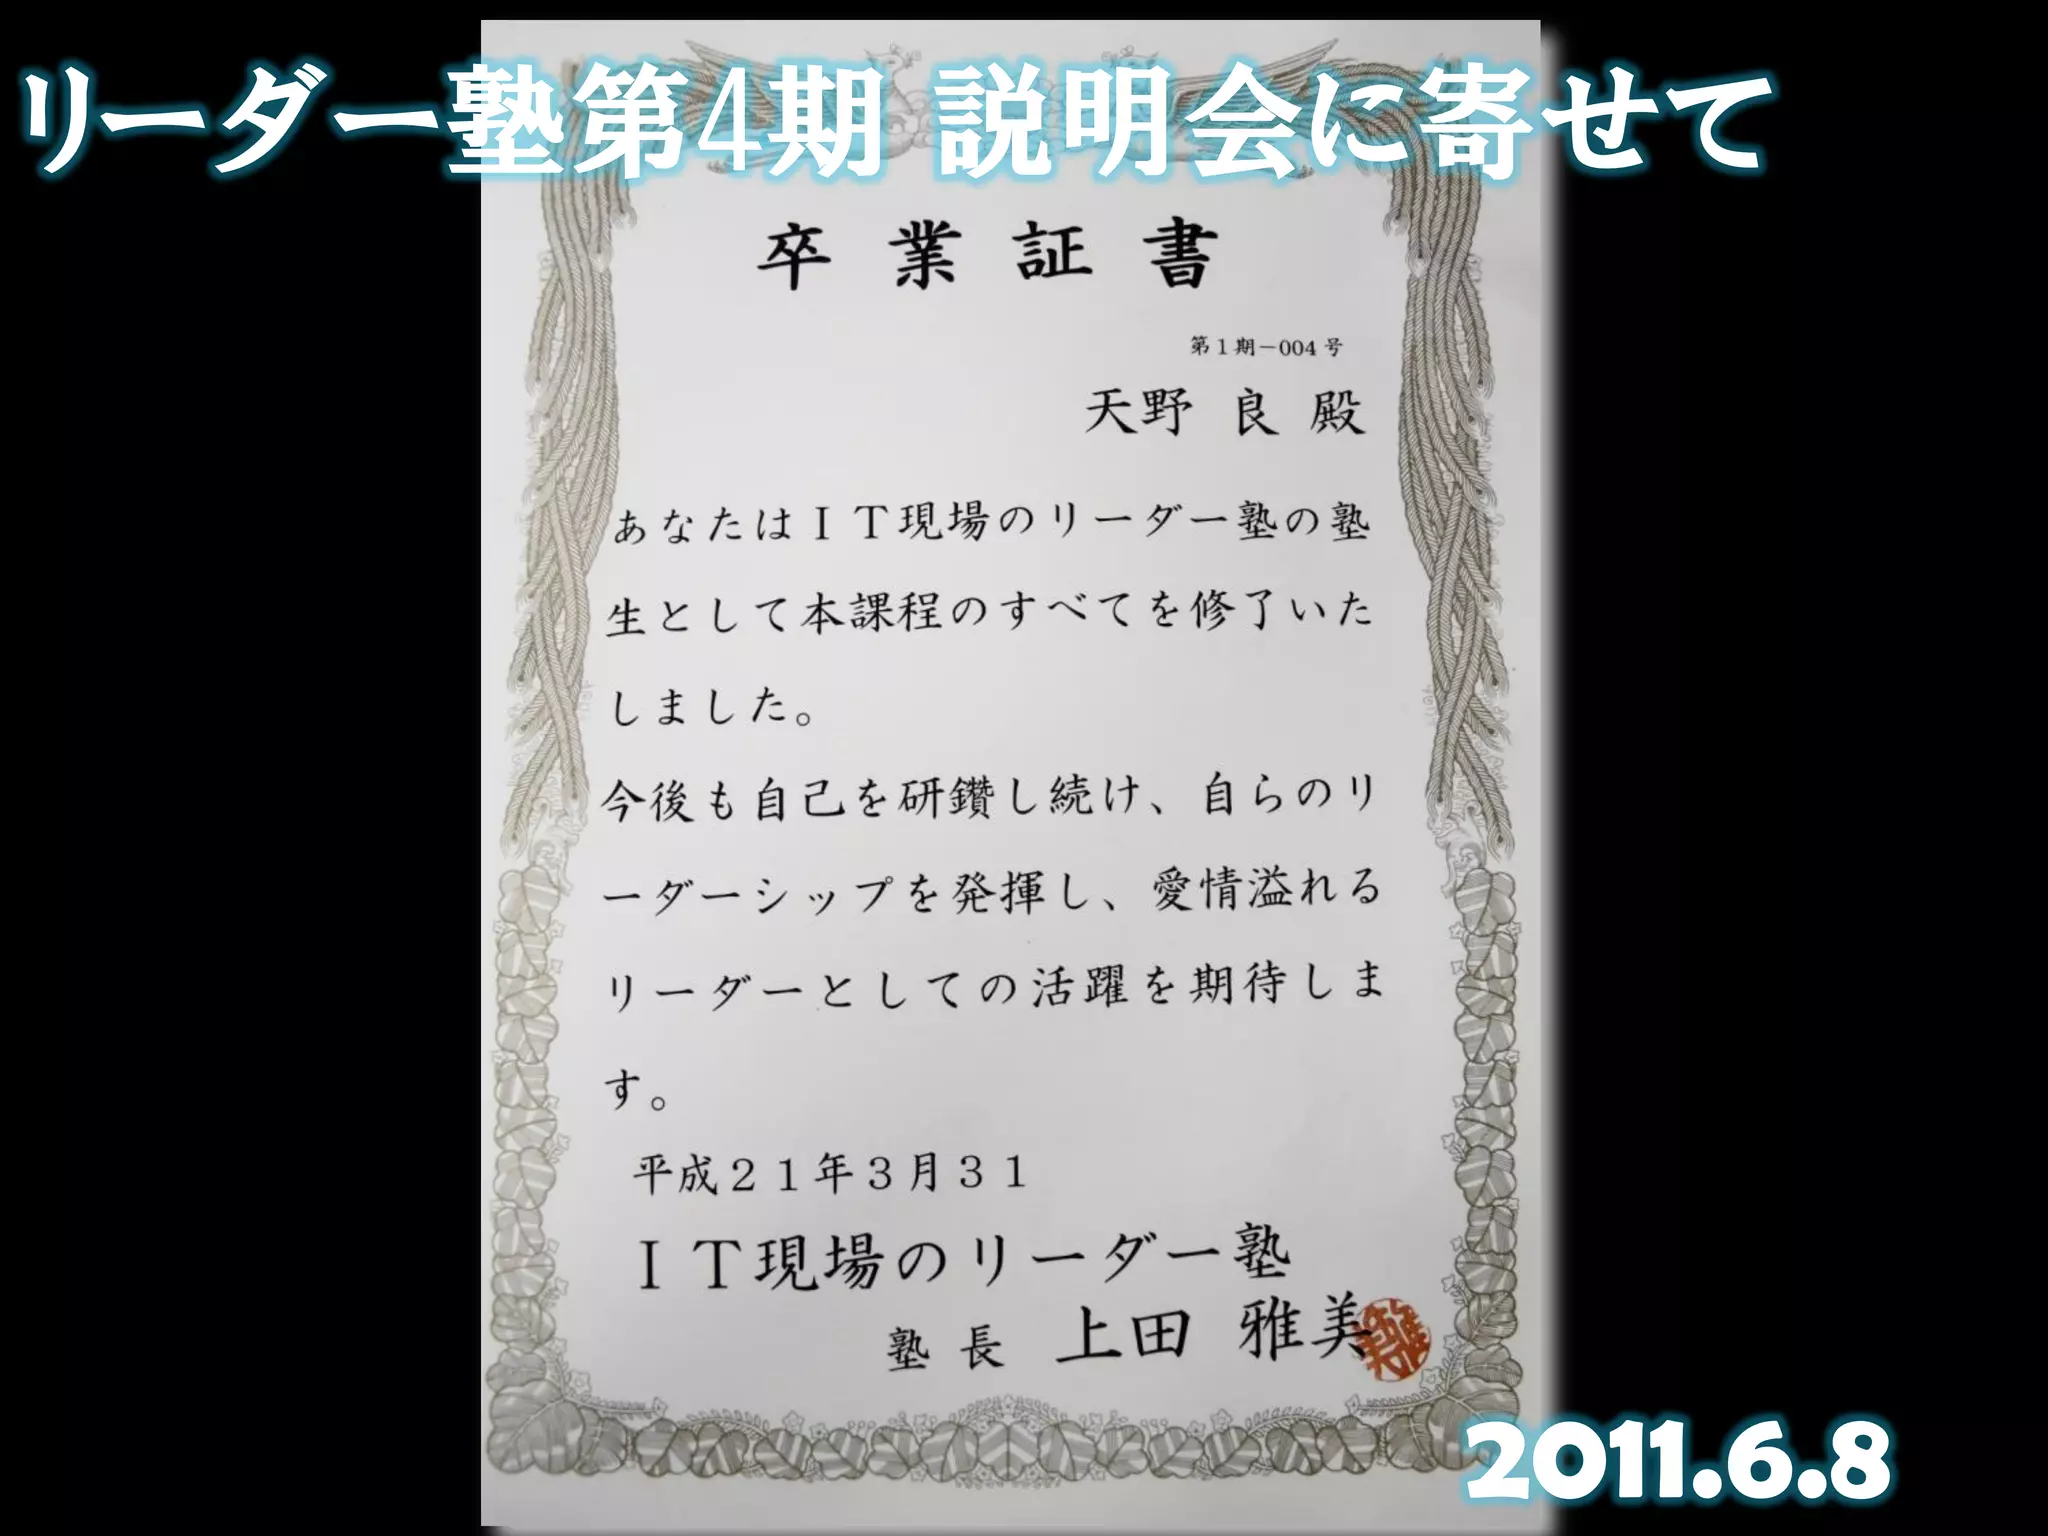 リーダー塾第4期 説明会に寄せて
卒業証書
第1期－004号
天野 良 殿
あなたはＩＴ現場のリーダー塾の塾
生として本課程のすべてを修了いた
しました。
今後も自己を研鑽し続け、自らのリ
ーダーシップを発揮し、愛情溢れる
リーダーとしての活躍を期待しま
す。
平成２１年３月３１
ＩＴ現場のリーダー塾
塾長 上田 雅美
2011.6.8